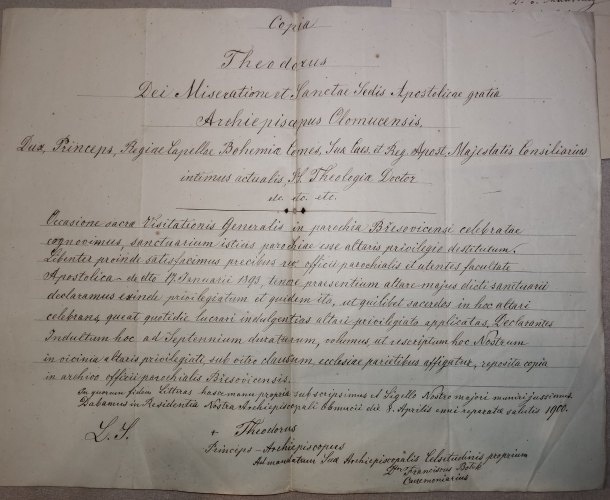 Copia
Theodorus
Dei Miseratione et Sanctae Sedis Apostolicae gratia
Archiepiscopus Olomucensis,
Dux, Princeps, Regiae Capellae Bohemiae Comes, Suae Caes. et Reg. Apost. Majestatis Consiliarius
intimus actualis, S. Theologiae Doctor
etc. etc. etc.
Occasione sacrae Visitationis Generalis in parochia Břesovicensi celebratae
cognovimus, sanctuarium istius parochiae esse altaris privilegio destitutum.
Libenter proinde satisfacimus precibus officii parochialis et utentes facultate
Apostolica de dto 17. Januarii 1893, tenore praesentium altare majus dicti sanctuarii
declaramus exinde privilegiatum et quidem ita, ut quilibet sacerdos in hoc altari
celebrans, queat quotidie lucrari indulgentias altari privilegiato applicatas. Declarantes
Indultum hoc ad Septennium duraturum, volumus, ut rescriptum hoc Nostrum
in vicinia altaris privilegiati, sub vitro clausum ecclesiae parietibus affigatur, reposita copia
in archivo officii parochialis Břesovicensis.
In quorum fidem litteras hasce manu propria subscripsimus et Sigillo Nostro majori muniri jussimus.
Dabamus in Residentia Nostra Archiepiscopali Olomucii die 8. Aprilis anni reparatae salutis 1900.
L. S.
+ Theodorus
Princeps-Archiepiscopus
Ad mandatum Suae Archiepiscopalis Celsitudinis proprium
Franciscus
Ceremoniarius